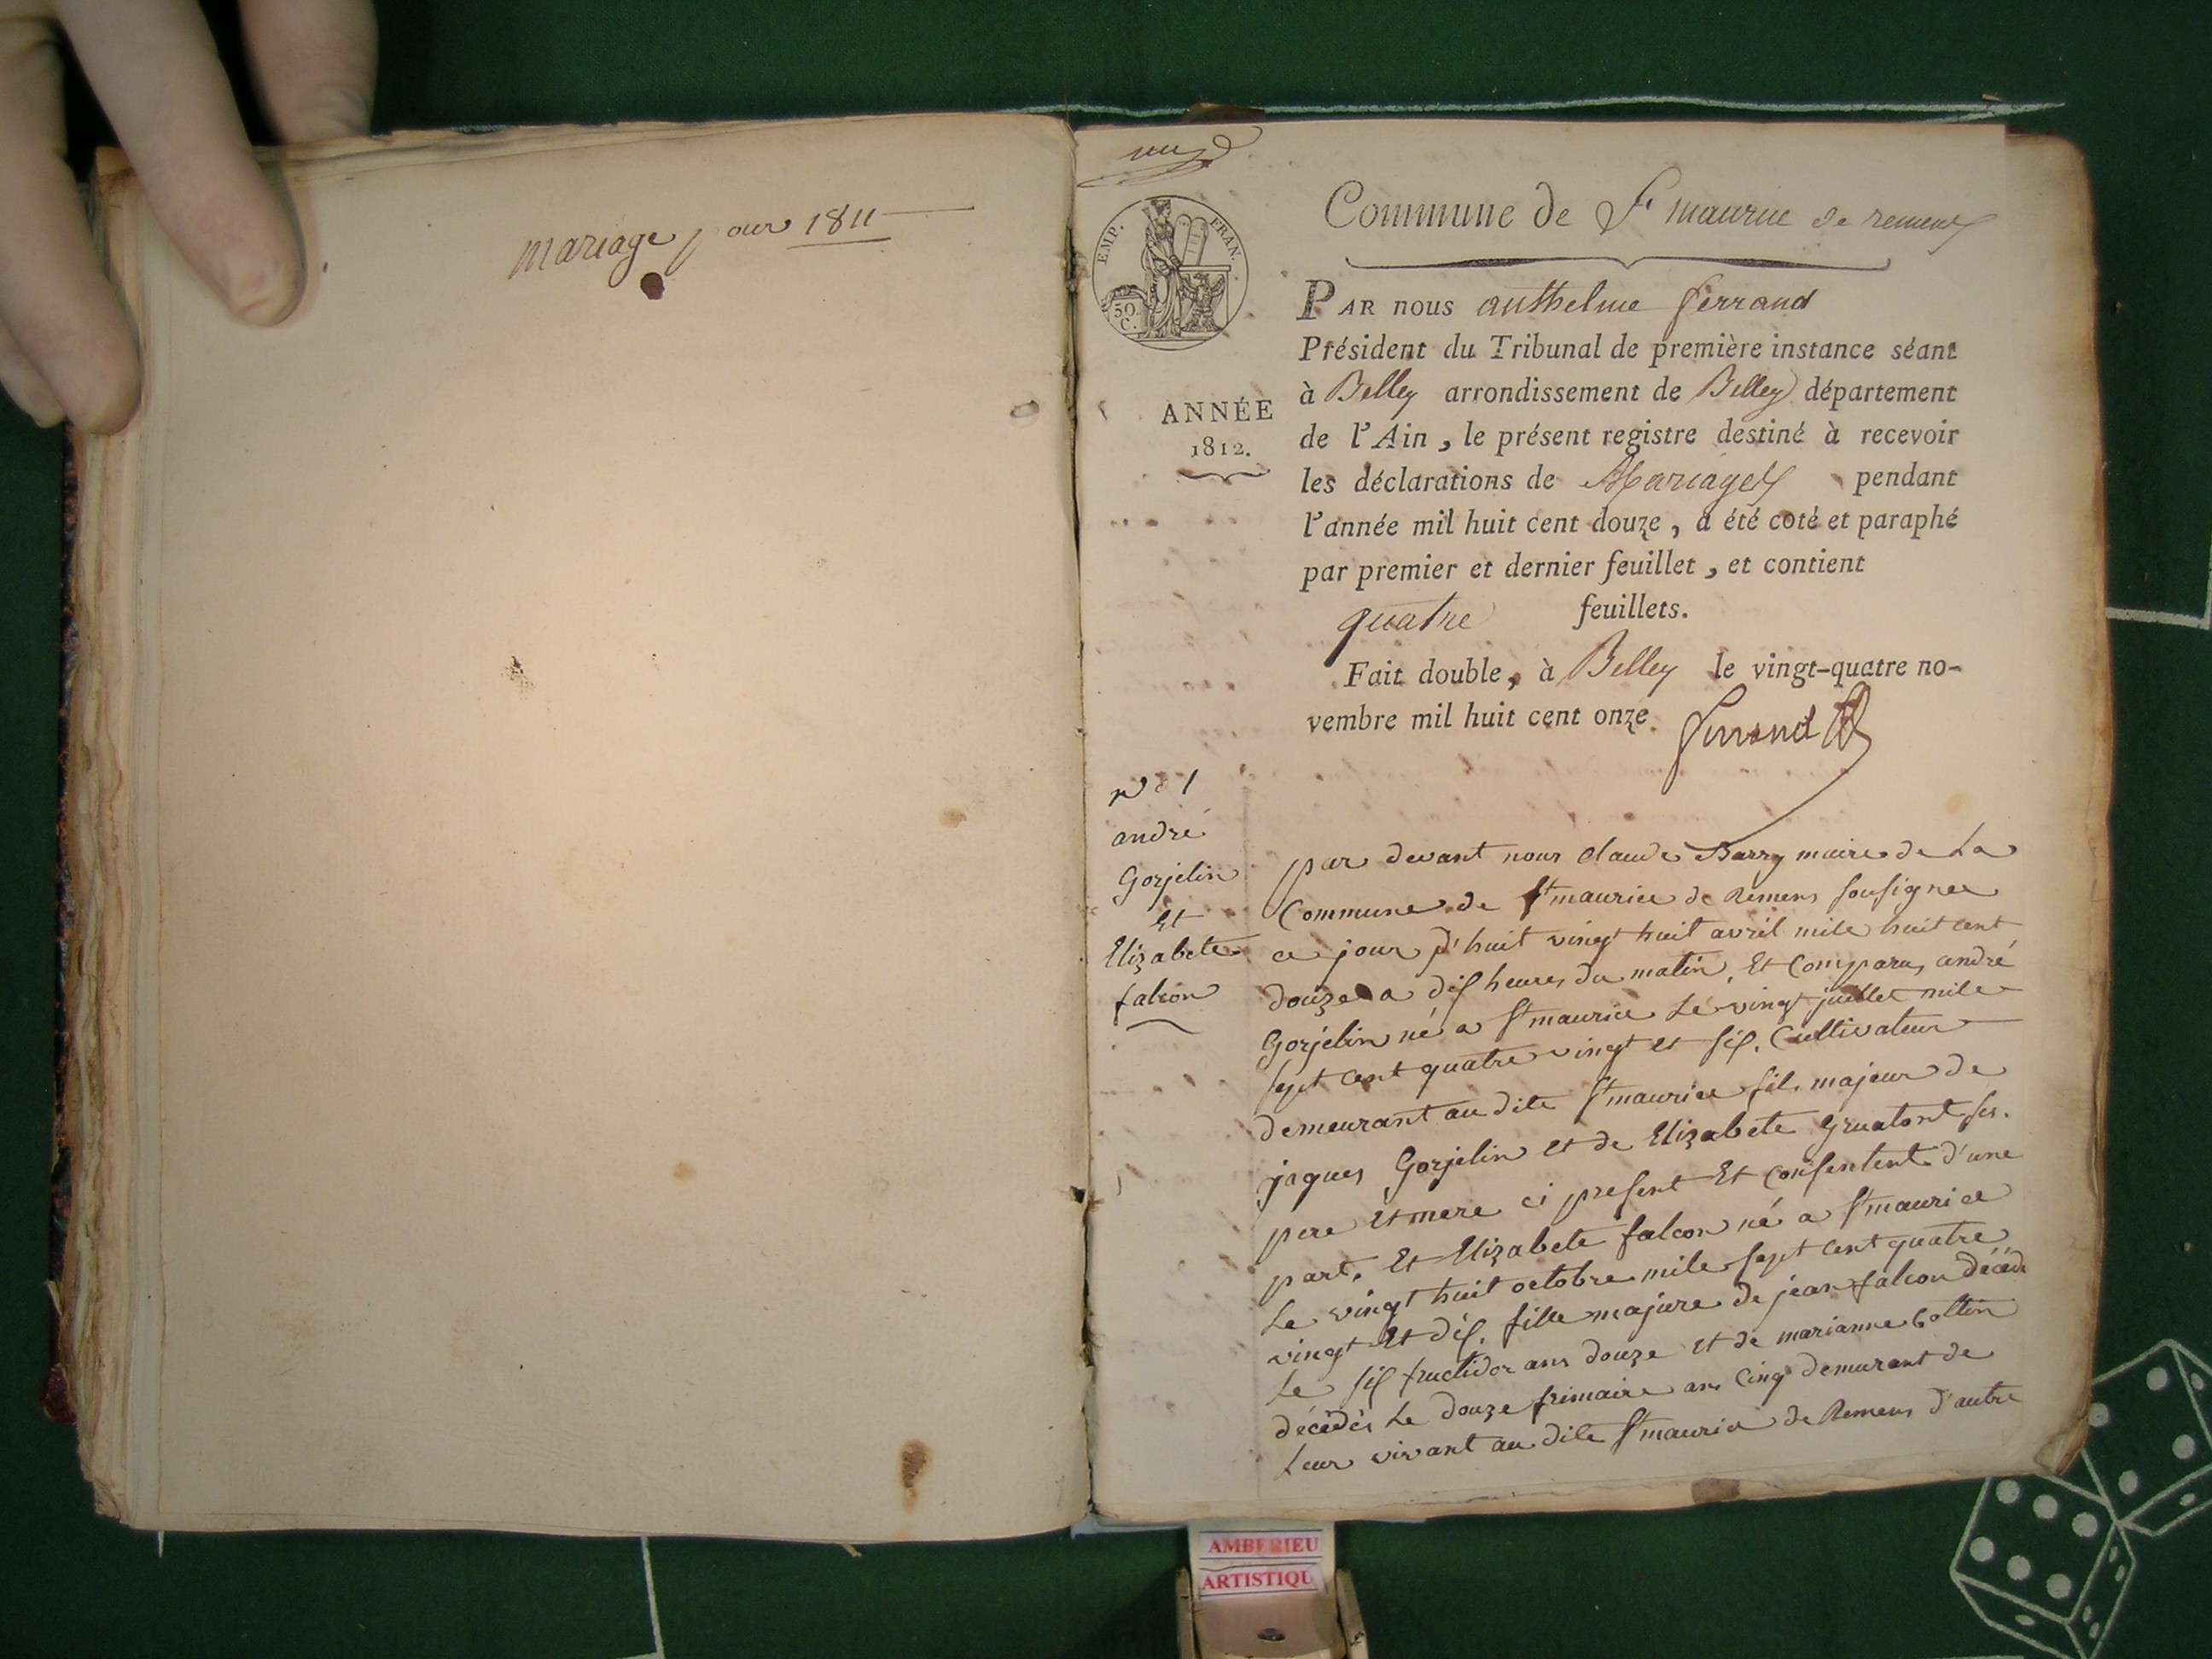 mariage pour 1811
EMP. FRAN.
50 C.
Commune de St maurice de remens
PAR nous anthelme ferrand
Président du Tribunal de première instance séant
à Belley arrondissement de Belley département
de l'Ain, le présent registre destiné à recevoir
les déclarations de Mariages pendant
l'année mil huit cent douze, a été coté et paraphé
par premier et dernier feuillet, et contient
quatre feuillets.
Fait double, à Belley le vingt-quatre no-
vembre mil huit cent onze.
ferrand
ANNÉE
1812.
no 1
andré
Gorjelin
Et
Elizabete
falcon
par devant nous claude Barry maire de La
Commune de St maurice de Remens sousignee
ce jour d'huit vingt huit avril mile huit cent
douze a dis heures du matin. Et Comparu andré
Gorjelin né a St maurice Le vingt juillet mile
sept cent quatre vingt et sis. Cultivateur
demeurant au dite St maurice fils majeur de
jaques Gorjelin et de Elizabete gruatont ses.
pere Et mere ci present Et consentent d'une
part. Et Elizabete falcon né a St maurice
Le vingt huit octobre mile sept cent quatre
vingt Et dis. fille majure de jean falcon décédé
Le sis fructidor ans douze et de marianne Coltin
décédés Le douze frimaire ans Cinq demurant de
Leur vivant au dite St maurice de Remens d'autre
AMBERIEU
ARTISTIQU